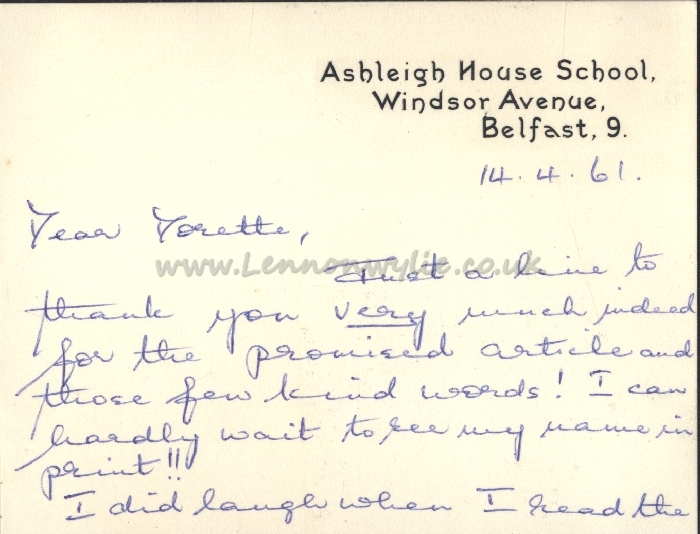 Ashleigh House School,
Windsor Avenue,
Belfast, 9.
14.4.61.
Dear Dorette,
www.Lennonwylie.co.uk
Just a line to
thank you very much indeed
for the promised article and
those few kind words! I can
hardly wait to see my name in
print!!
I did laugh when I read the